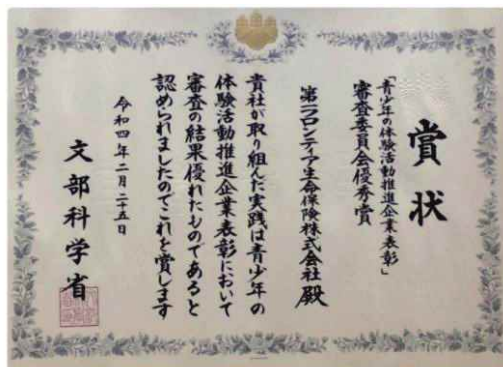 賞状
「青少年の体験活動推進企業表彰」
審査委員会優秀賞
第一フロンティア生命保険株式会社殿
貴社が取り組んだ実践は青少年の
体験活動推進企業表彰において
審査の結果優れたものであると
認められましたのでこれを賞します
令和四年二月二十五日
文部科学省